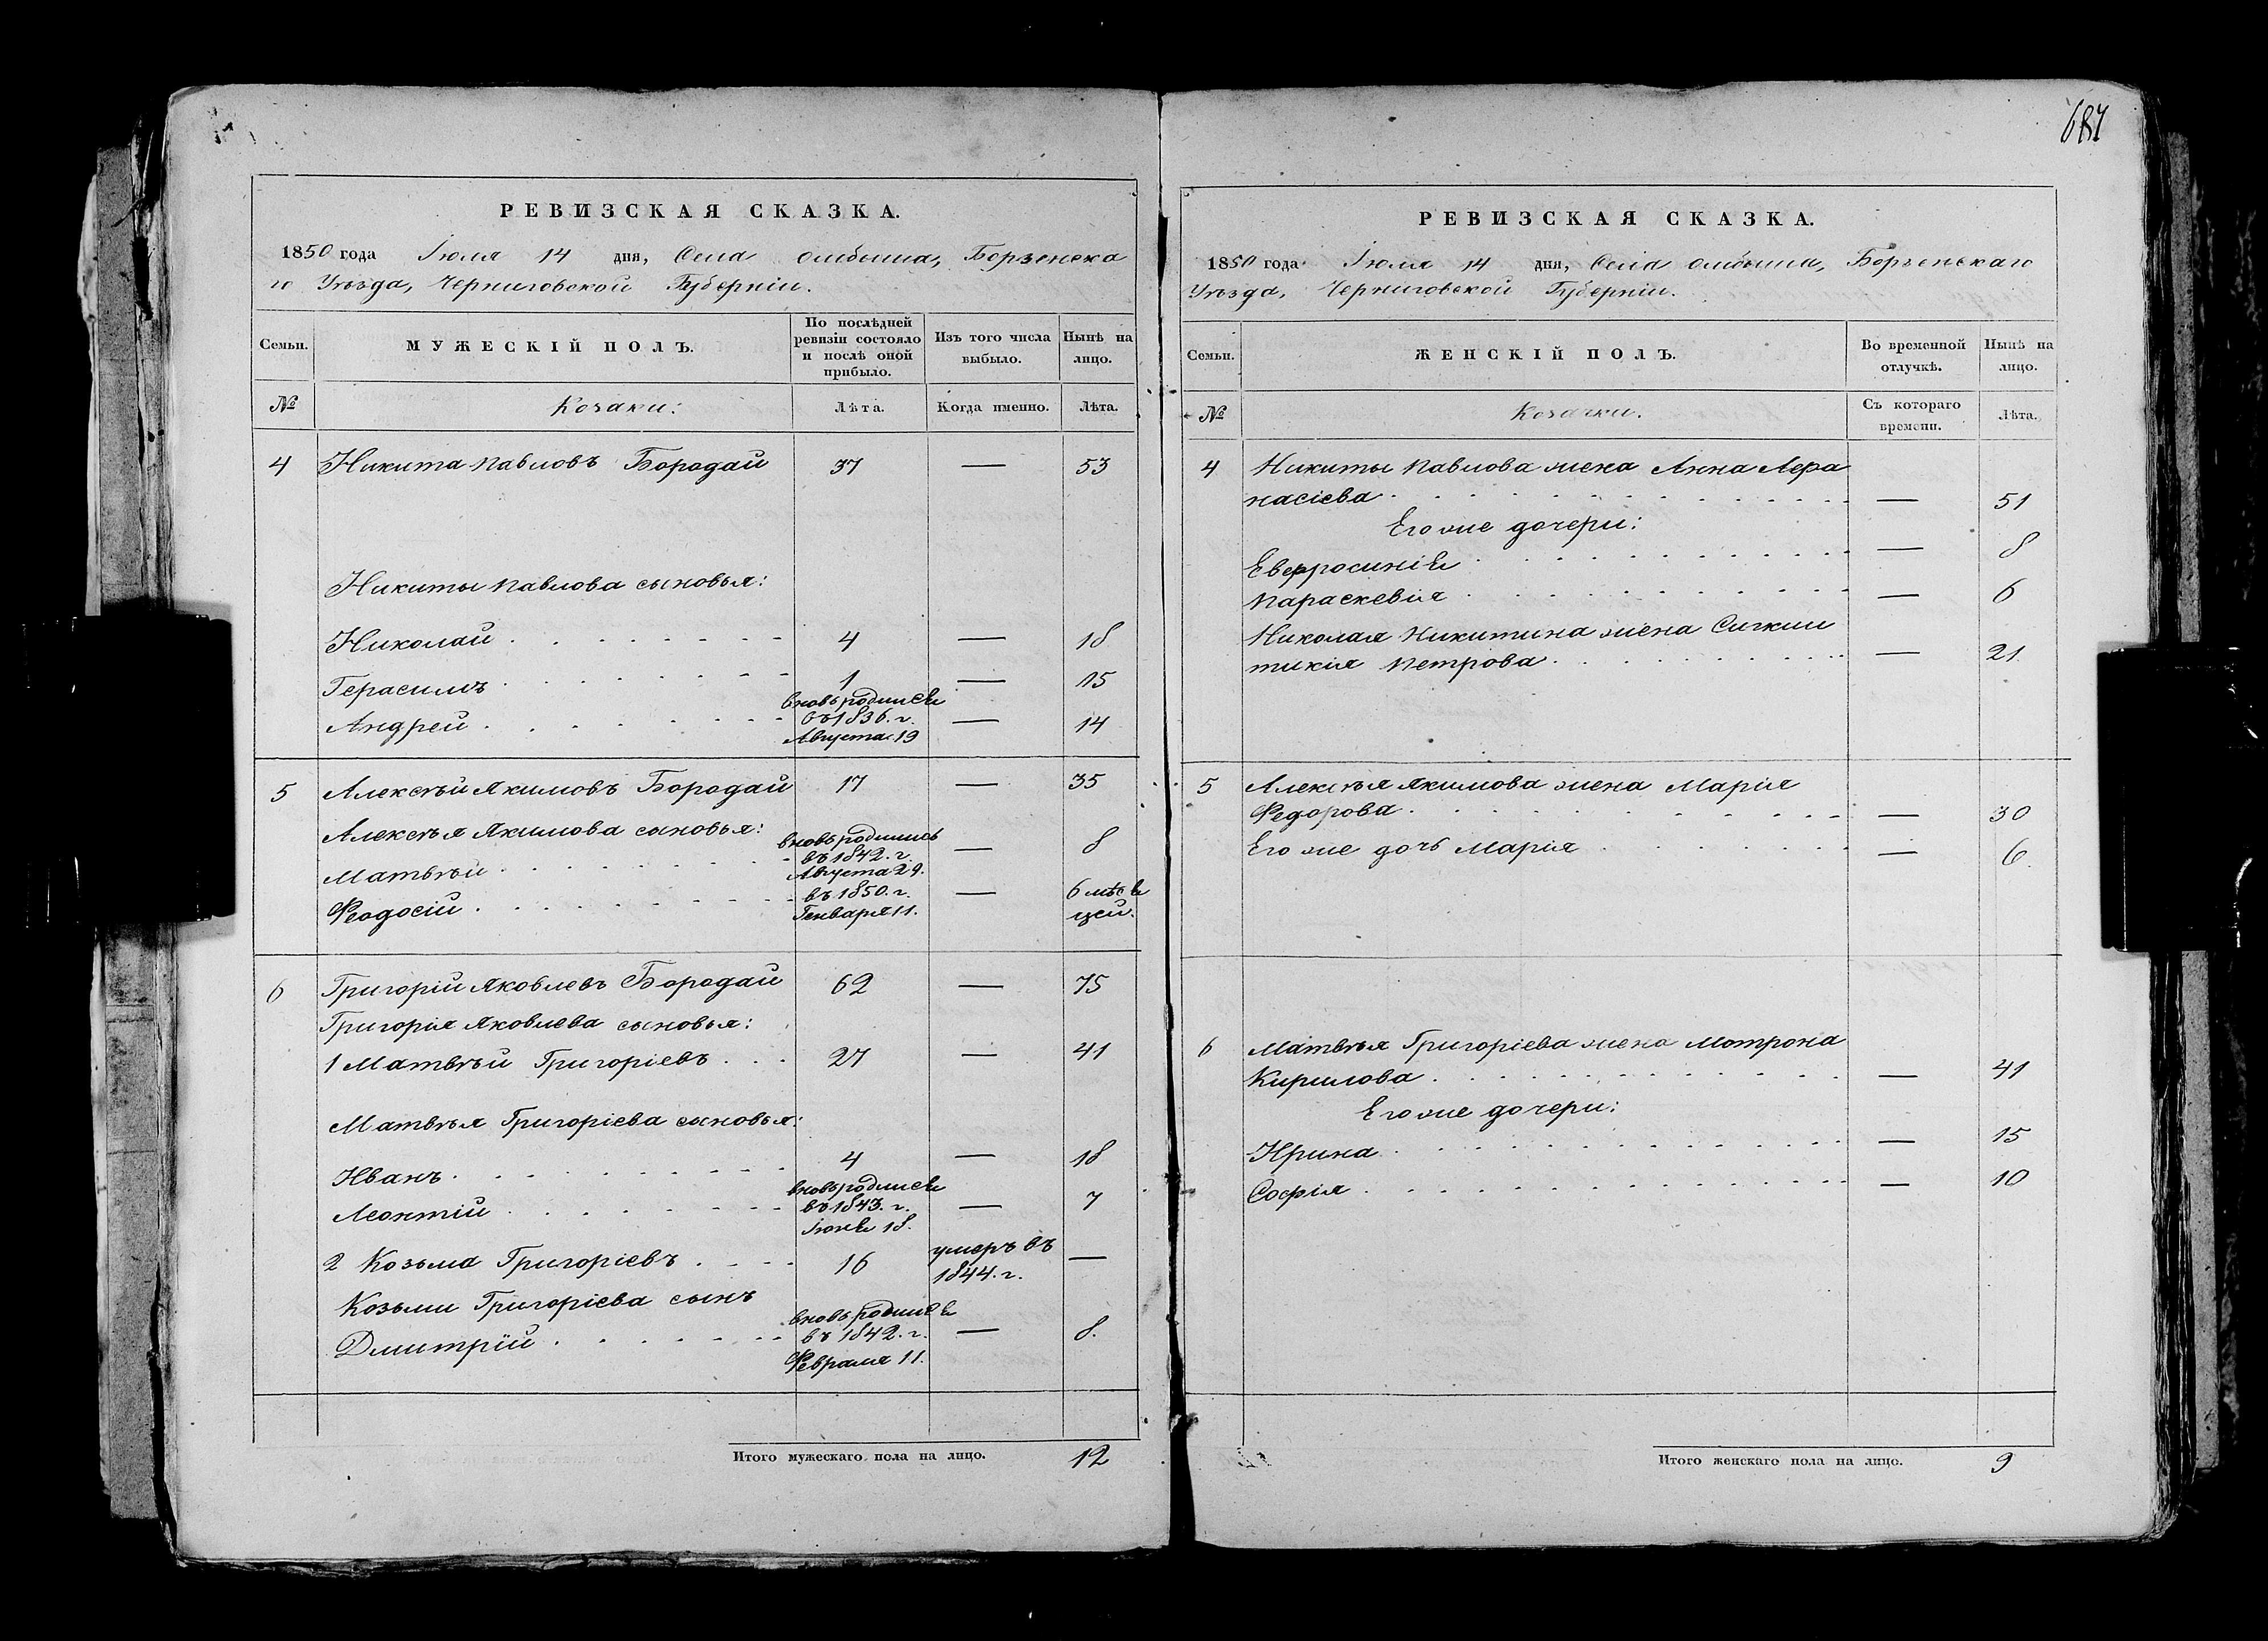 687
РЕВИЗСКАЯ СКАЗКА.
1850 года Іюля 14 дня, Села Омбыша, Борзенска
го Уѣзда, Черниговской Губерніи.
Семьи.
МУЖЕСКІЙ ПОЛЪ.
По послѣдней
ревизіи состояло
и послѣ оной
прибыло.
Изъ того числа
выбыло.
Нынѣ на
лицо.
№ Козаки: Лѣта. Когда именно. Лѣта.
4 Никита Павловъ Бородай 37 — 53
Никиты Павлова сыновья:
Николай 4 — 18
Герасимъ 1 — 15
вновь родился
Андрей въ 1836. г. — 14
Августа 19
5 Алексѣй Якимовъ Бородай 17 — 35
Алексѣя Якимова сыновья:
вновь родились
Матвѣй въ 1842. г. — 8
Августа 29.
Феодосій въ 1850. г. — 6 мѣся
Генваря 11. цей.
6 Григорій Яковлевъ Бородай 62 — 75
Григорія Яковлева сыновья:
1 Матвѣй Григоріевъ 27 — 41
Матвѣя Григоріева сыновья:
Иванъ 4 — 18
вновь родился
Леонтій въ 1843. г. — 7
Іюня 18.
2 Козьма Григоріевъ 16 умеръ въ —
1844. г.
Козьми Григоріева сынъ
вновь родился
Дмитрій въ 1842. г. — 8.
Февраля 11.
Итого мужескаго пола на лицо. 12
РЕВИЗСКАЯ СКАЗКА.
1850 года Іюля 14 дня, Села Омбыша, Борзенскаго
Уѣзда, Черниговской Губерніи.
Семьи.
ЖЕНСКІЙ ПОЛЪ.
Во временной
отлучкѣ.
Нынѣ на
лицо.
№ Козачки. Съ котораго
времени.
Лѣта.
4 Никиты Павлова жена Анна Афа
насіева — 51
Его же дочери:
Евфросинія — 8
Параскевія — 6
Николая Никитина жена Синкли
тикія Петрова — 21
5 Алексѣя Якимова жена Марія
Федорова — 30
Его же дочь Марія — 6
6 Матвѣя Григоріева жена Мотрона
Кирилова — 41
Его же дочери:
Ирина — 15
Софія — 10
Итого женскаго пола на лицо. 9